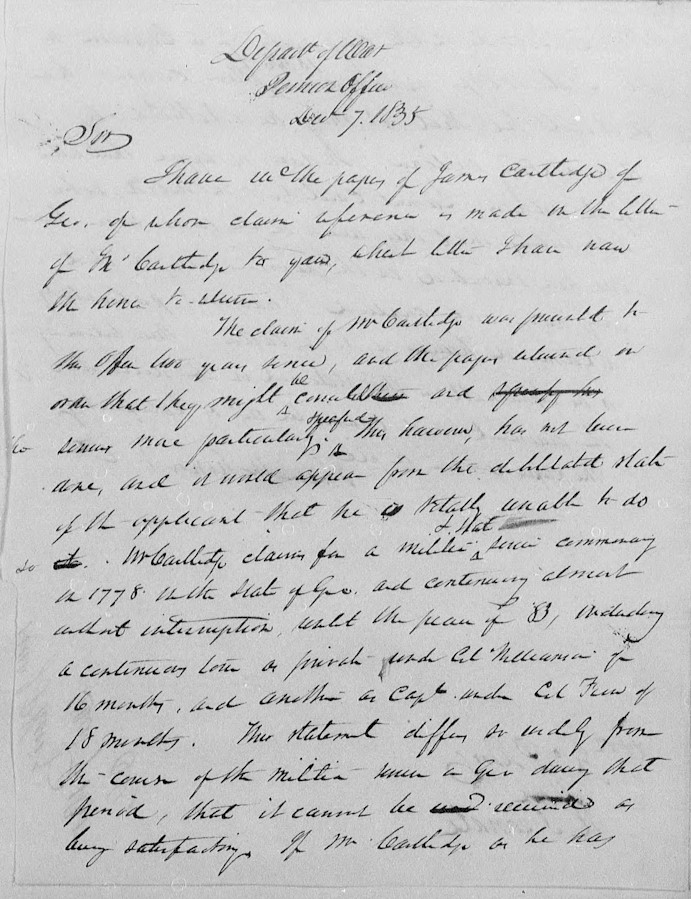 Depart of War
Pension Office
Dec 7. 1835
Sir
I have recd the papers of James Cartledge of
Geo. of whose claim reference is made in the letter
of Mr Cartledge to you, which letter I have now
the honor to return.
The claim of Mr Cartledge was presented to
this Office two years since, and the papers returned in
order that they might be and
service more particularly specified. This however, has not been
done, and it would appear from the debilitated state
of the applicant that he is totally unable to do
so it. Mr Cartledge claims for a militia & State service commencing
in 1778 in the State of Geo. and continuing almost
without interruption, until the peace of 83, including
a continuous tour as private under Col Williamson of
16 months, and another as Capt. under Col of
18 months. This statement differs so widely from
the course of the militia service in Geo during that
period, that it cannot be received as
being satisfactory. If Mr Cartledge or he has